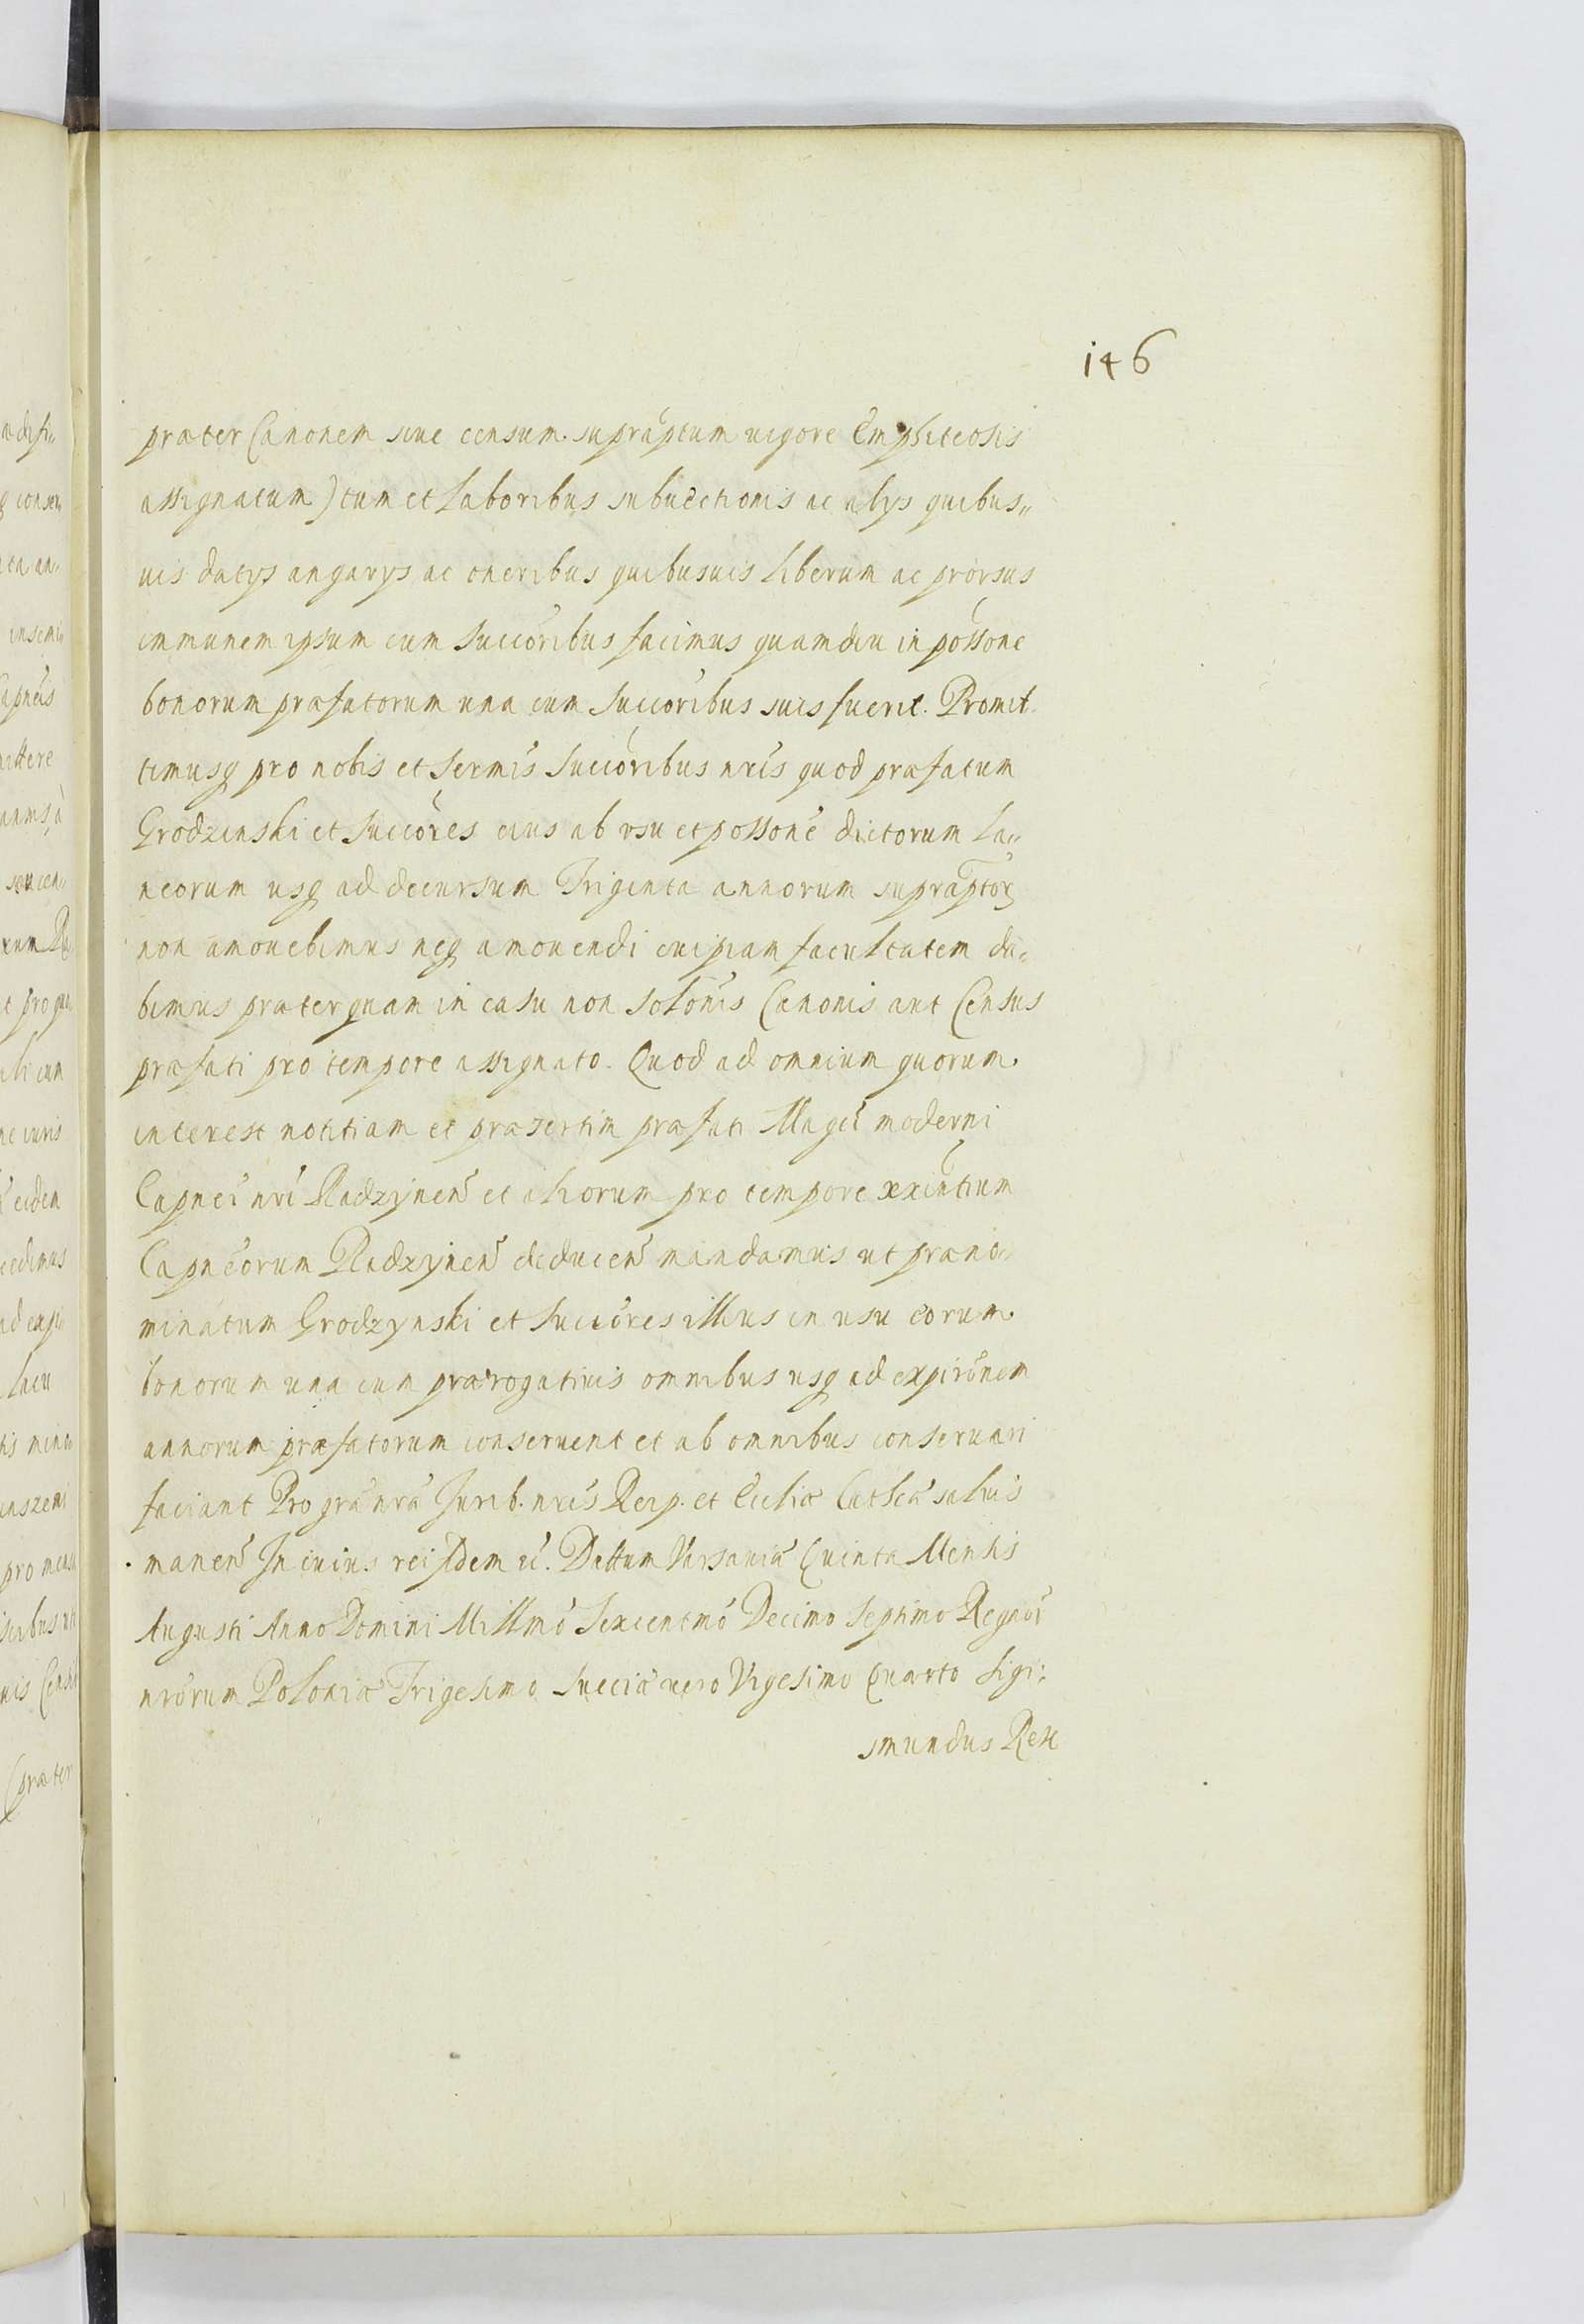 146
præter Canonem siue censum supraptum uigore Emphiteosis
assignatum) tum et laboribus subuectionis ac alys quibus„
uis datys angarys ac oneribus quibusuis liberum ac prorsus
immunem ipsum cum Succoribus facimus quamdiu in possone
bonorum præfatorum una cum Succoribus suis fuerit. Promit
timusq pro nobis et Sermis Succoribus nris quod præfatum
Grodzinski et Succores eius ab vsu et possone dictorum La„
neorum usq ad decursum Triginta annorum supraptor
non amouebimus neq amouendi cuipiam facultatem da„
bimus præterquam in casu non Solonis Canonis aut Census
præfati pro tempore assignato. Quod ad omnium quorum
interest notitiam et præsertim præfati Magci moderni
Capnei nri Radzynen et aliorum pro tempore xxintium
Capneorum Radzynen deducen mandamus ut præno„
minatum Grodzynski et Succores illius in usu eorum
bonorum una cum prærogatiuis omnibus usq ad expironem
annorum præfatorum conseruent et ab omnibus conseruari
faciant Pro gra nra Jurib. nris Reip. et Eccliæ Cathcæ saluis
manen In cuius rei fidem ec. Dattum Varsauiæ Quinta Mensis
Augusti Anno Domini Millmo Sexcentmo Decimo Septimo Regnor
nrorum Poloniæ Trigesimo Sueciæ uero Vigesimo Quarto Sigi:
smundus Rex